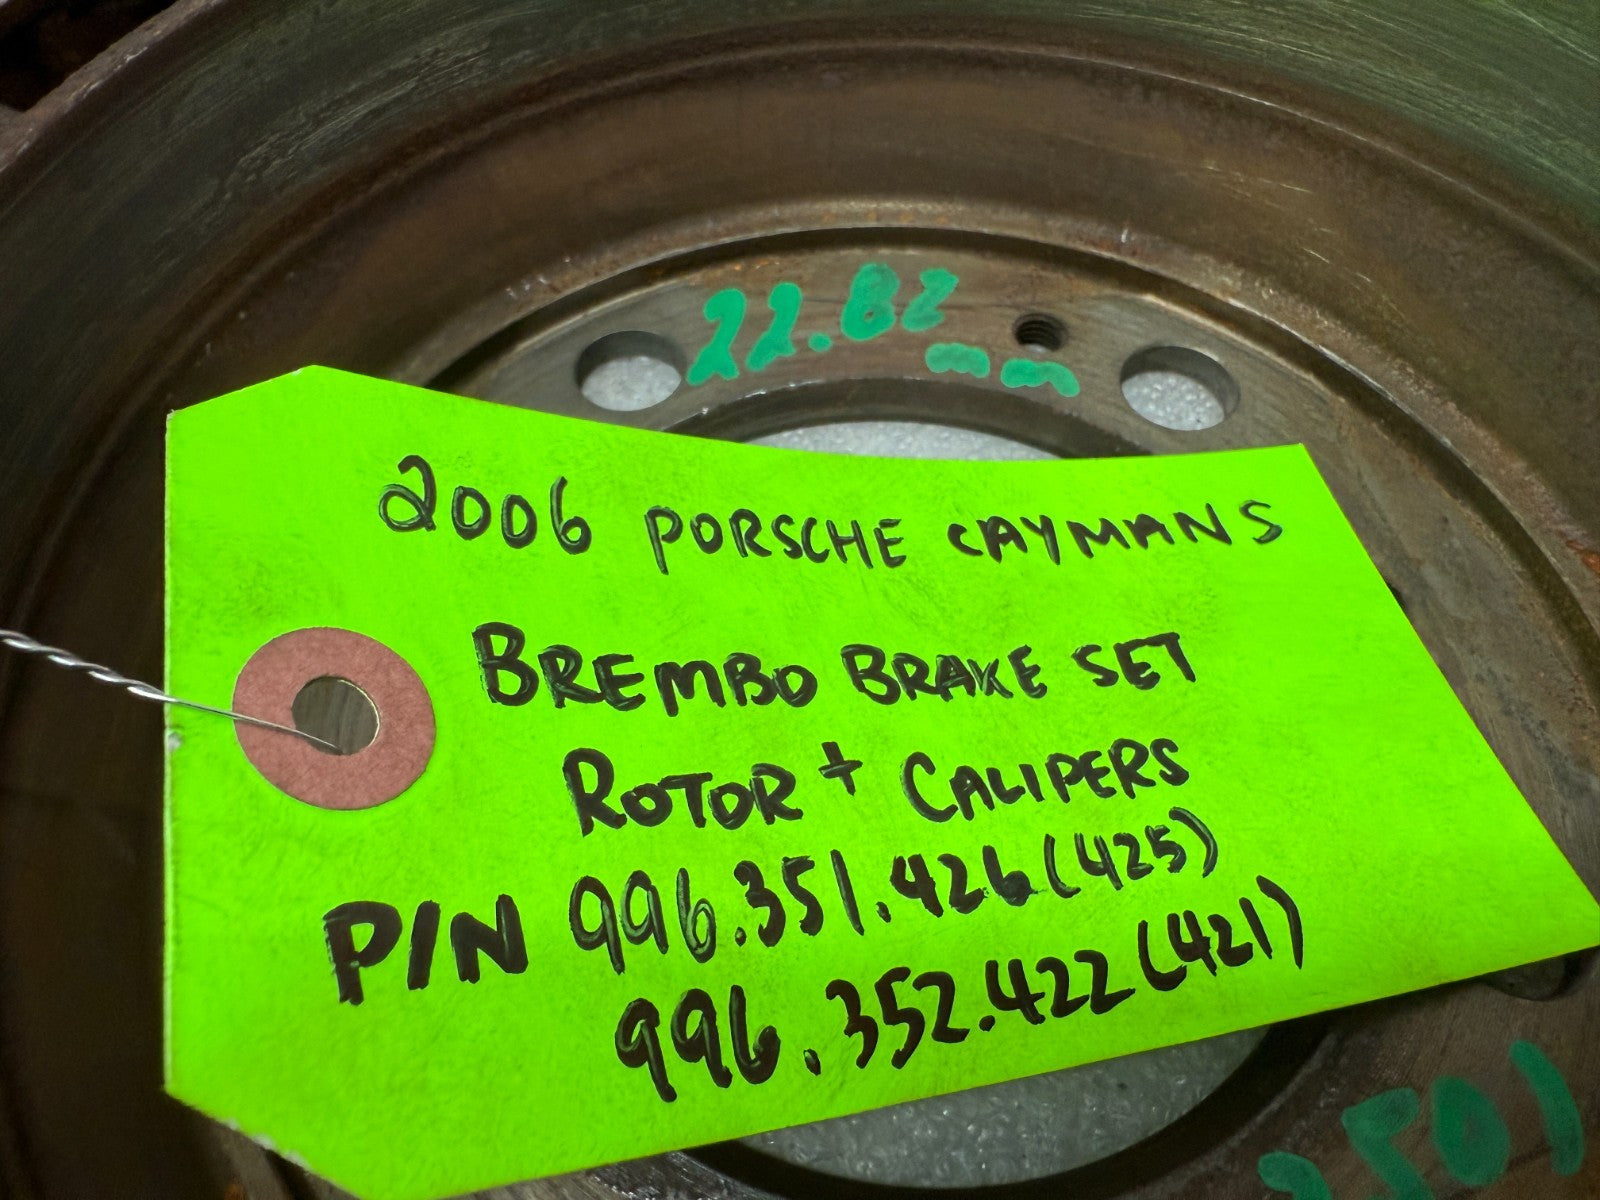 22.82
mm
2006 PORSCHE CAYMAN S
BREMBO BRAKE SET
ROTOR + CALIPERS
P/N 996.351.426 (425)
996.352.422 (421)